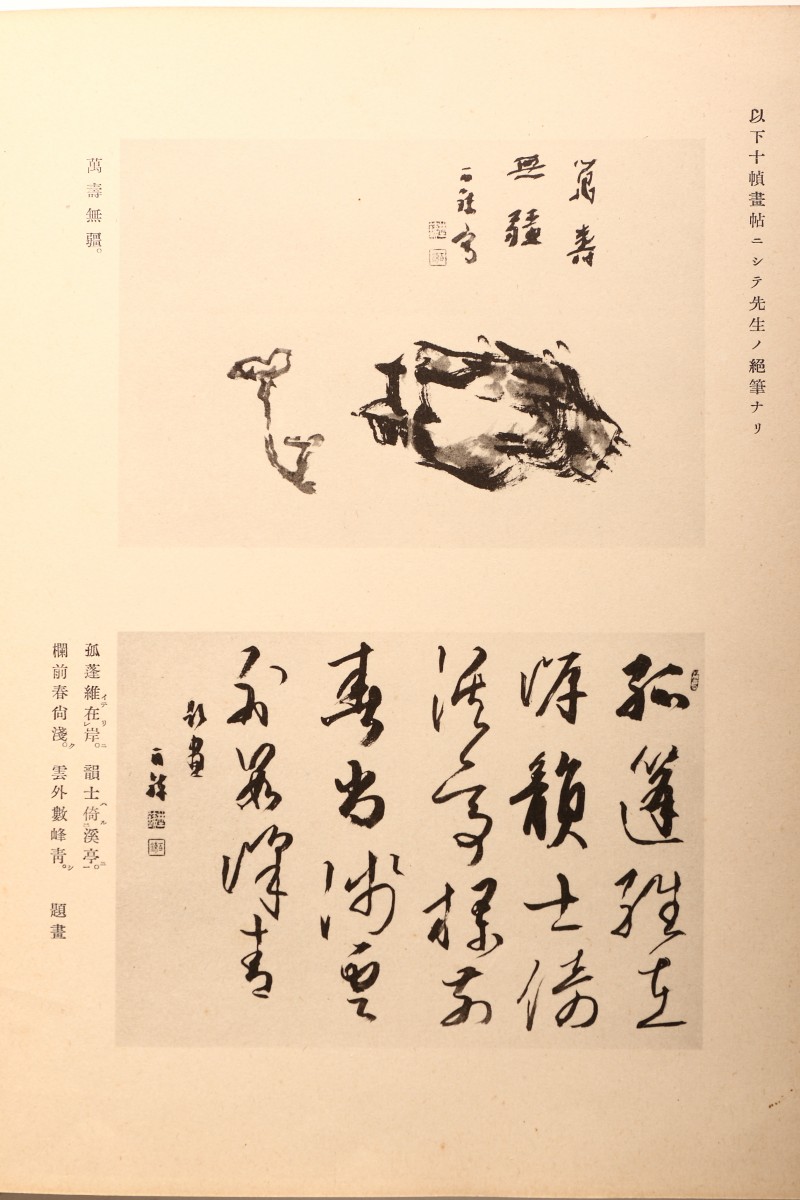 以下十幀畫帖ニシテ先生ノ絕筆ナリ
萬壽
無疆
萬壽無疆。
孤篷維在
岸韻士倚
溪亭欄前
春尚淺雲
外數峰青
題畫
孤蓬維在岸。韻士倚溪亭。
欄前春尙淺。雲外數峰靑。 題畫